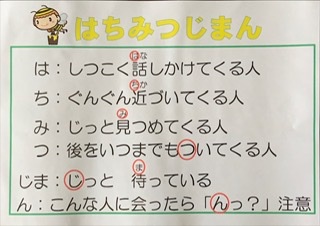 はちみつじまん
は：しつこく話しかけてくる人
ち：ぐんぐん近づいてくる人
み：じっと見つめてくる人
つ：後をいつまでもついてくる人
じま：じっと　待っている
ん：こんな人に会ったら「んっ？」注意